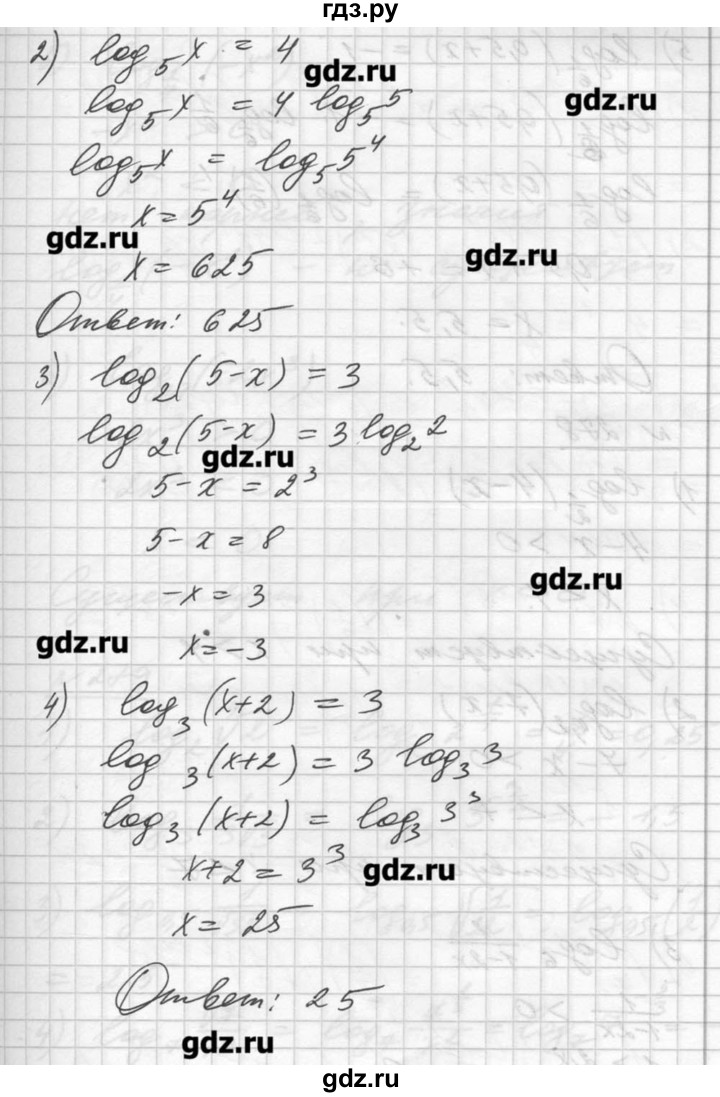 гдз.ру
2) log₅x = 4
gdz.ru
gdz.ru
log₅x = 4 log₅5
log₅x = log₅5⁴
x = 5⁴
gdz.ru
gdz.ru
x = 625
Ответ: 625
3) log₂(5-x) = 3
log₂(5-x) = 3 log₂2
gdz.ru
5-x = 2³
5-x = 8
gdz.ru
-x = 3
gdz.ru
x = -3
4) log₃(x+2) = 3
log₃(x+2) = 3 log₃3
log₃(x+2) = log₃3³
x+2 = 3³
gdz.ru
x = 25
Ответ: 25
gdz.ru
gdz.ru